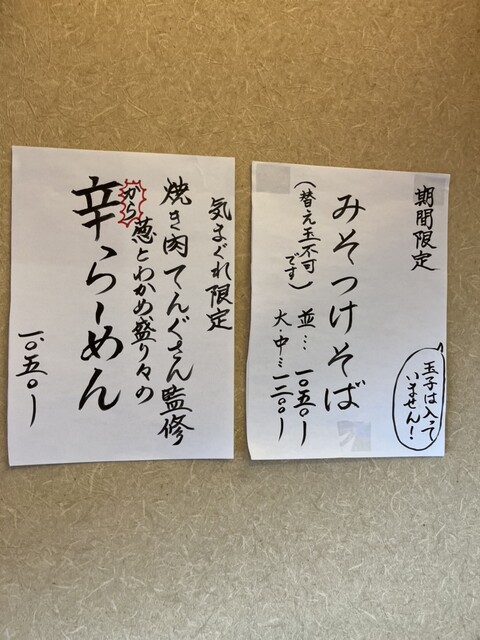 期間限定
みそつけそば
(替え玉不可
です)
並…一〇五〇ー
大・中…一二〇〇ー
玉子は入って
いません!
気まぐれ限定
焼き肉てんぐさん監修
葱とわかめ盛り々の
から
辛らーめん
一、〇五〇ー